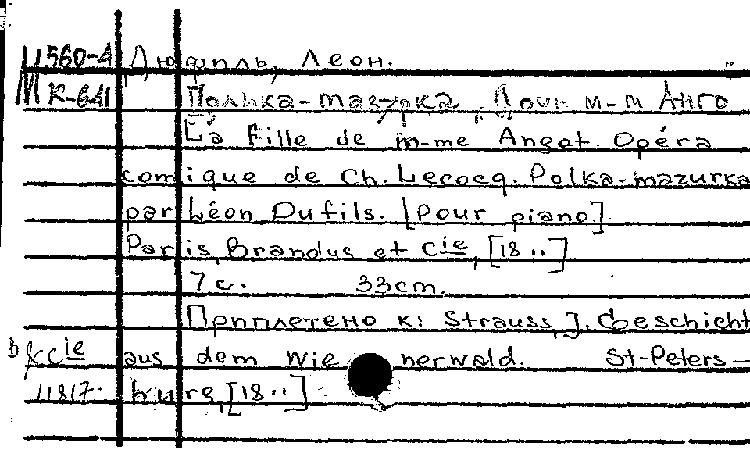 М 560-4 Дюфиль, Леон.
К-641 Полька-мазурка „Дочь м-м Анго"
La Fille de m-me Angot. Opéra
comique de Ch. Lecocq. Polka-mazurka
par Léon Dufils. [Pour piano]
Paris, Brandus et Cie, [18..]
7 с. 33 cm.
Приплетено к: Strauss, J. Geschicht
aus dem Wienerwald. St-Peters-
burg, [18..]
ccie
11817.